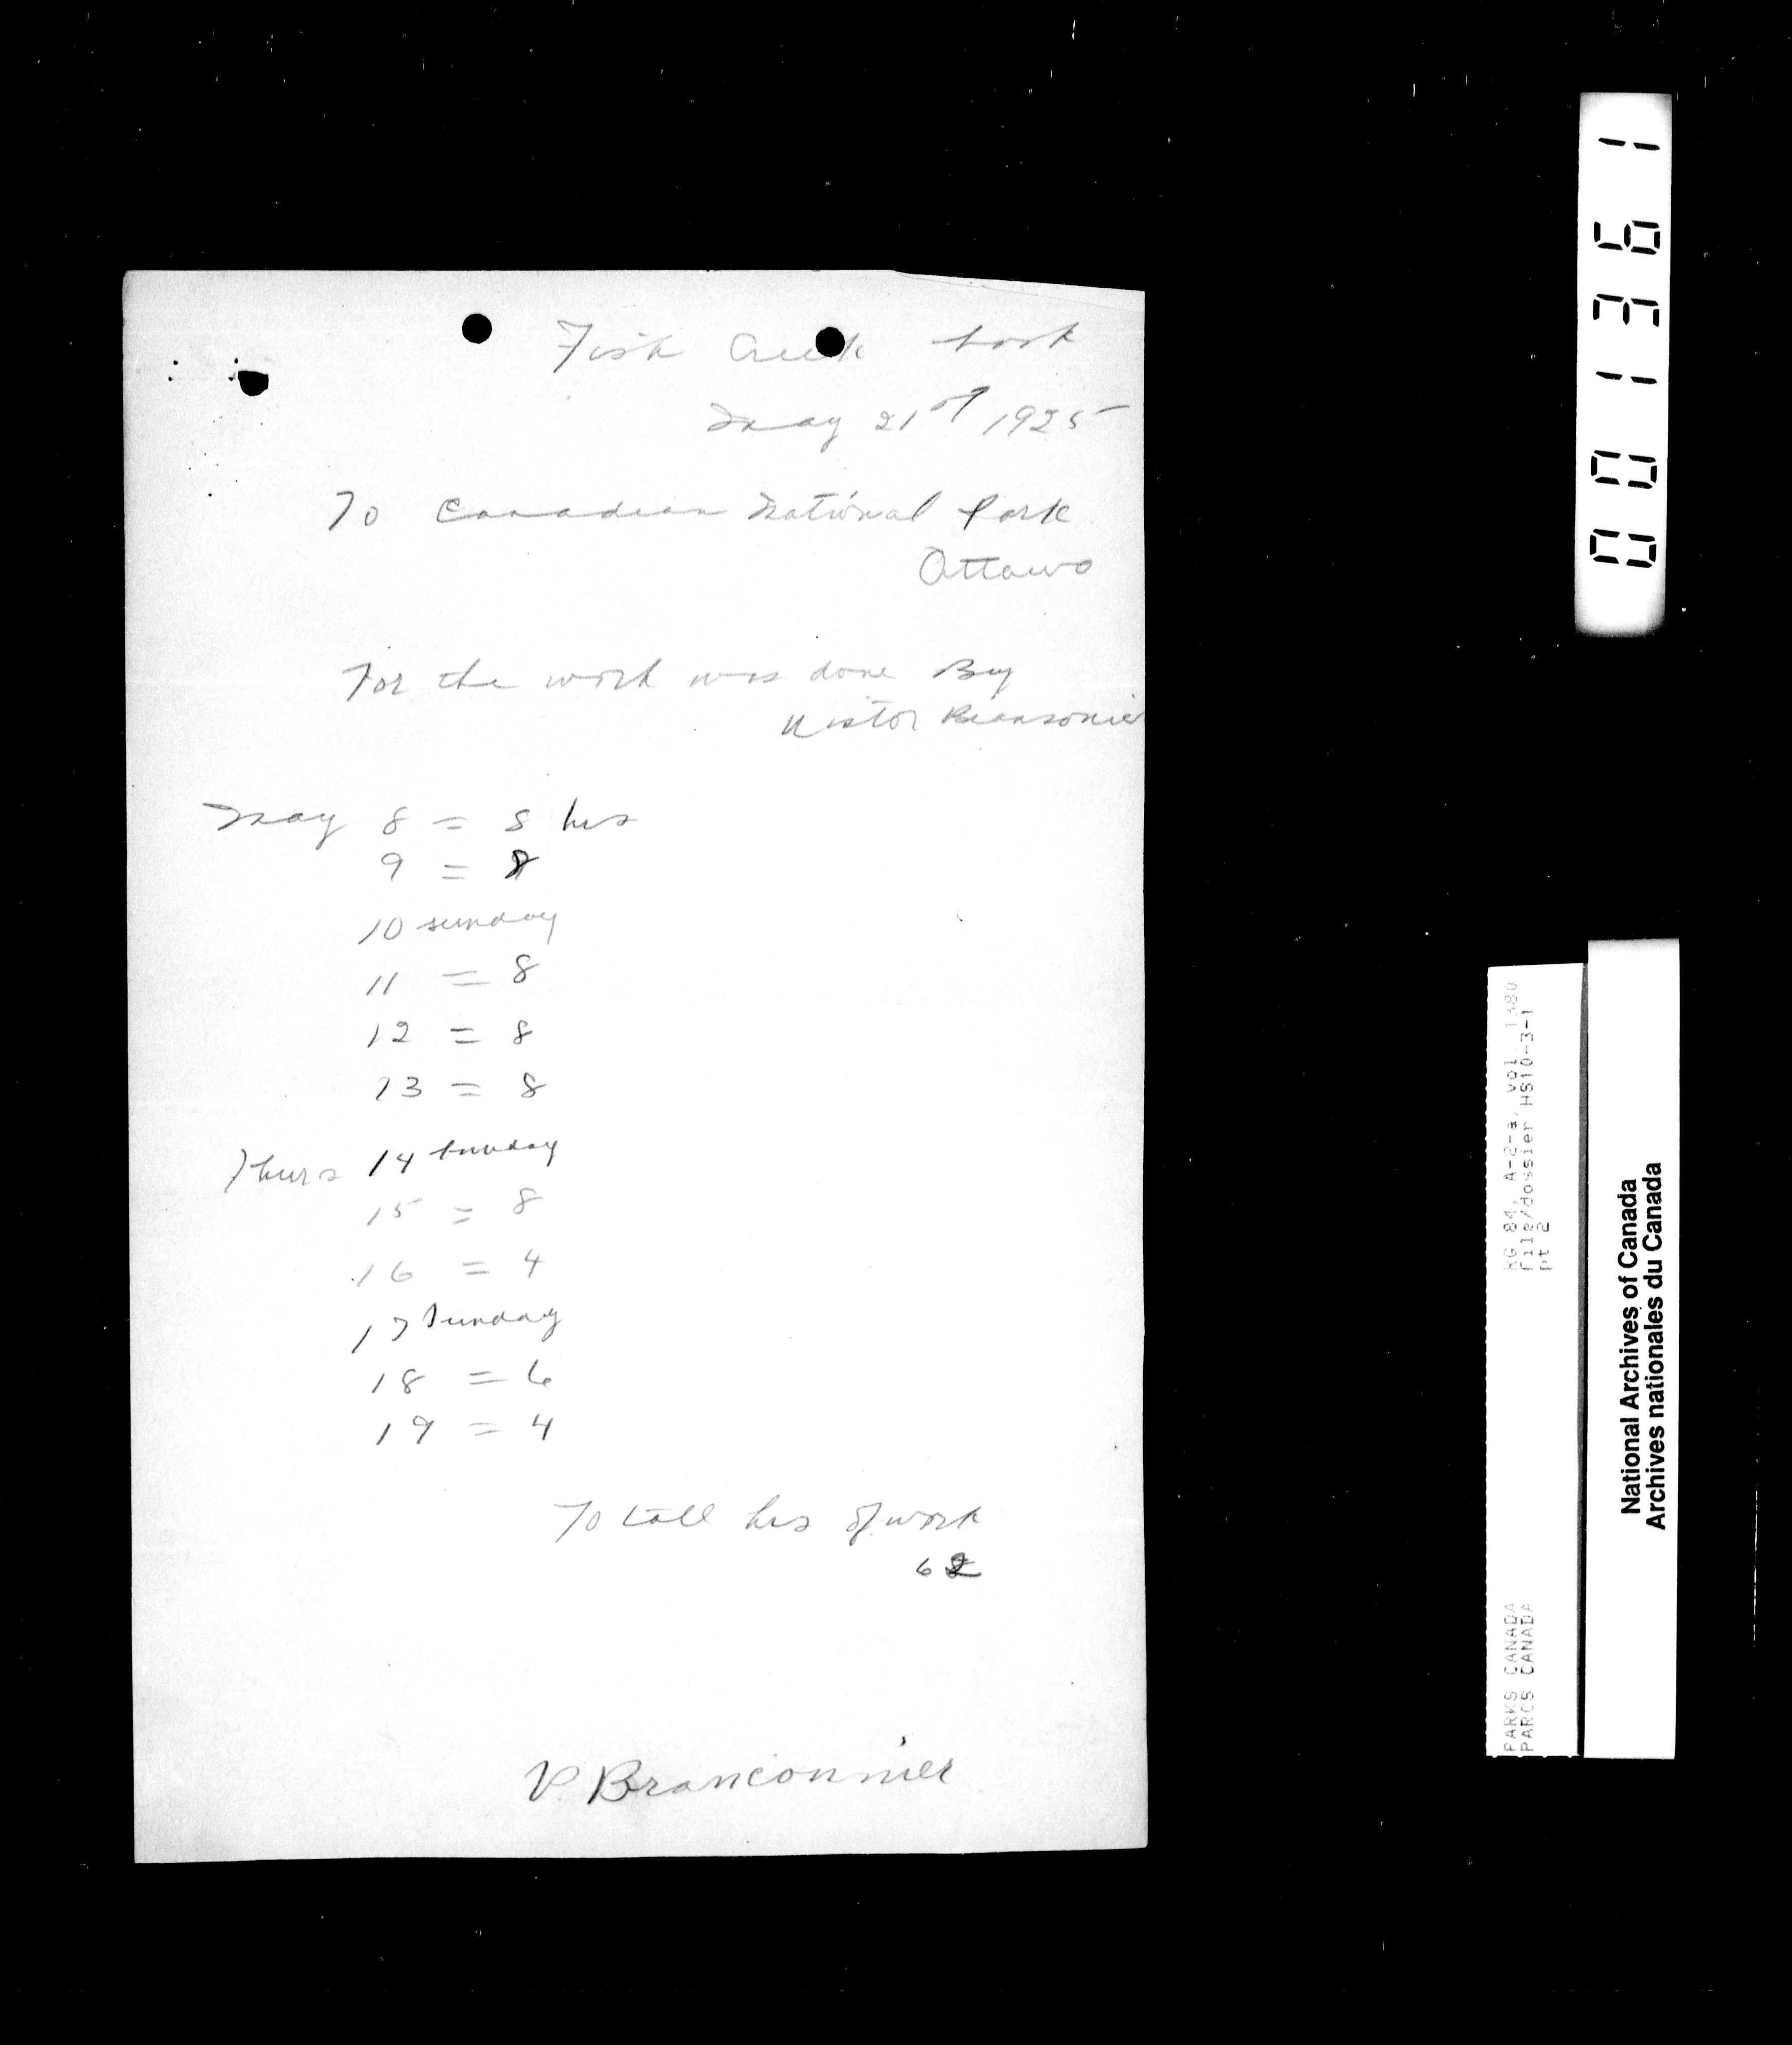 Fish Creek Sask
May 21st 1925
To Canadian National Park
Ottawa
For the work was done By
Victor Bransonier
May 8 = 8 hrs
9 = 8
10 sunday
11 = 8
12 = 8
13 = 8
Thurs 14 sunday
15 = 8
16 = 4
17 Sunday
18 = 6
19 = 4
To tall hrs of work
62
V. Branconnier
001361
RG 84, A-2-a, vol 1380
File/dossier HS10-3-1
pt 2
PARKS CANADA
PARCS CANADA
National Archives of Canada
Archives nationales du Canada